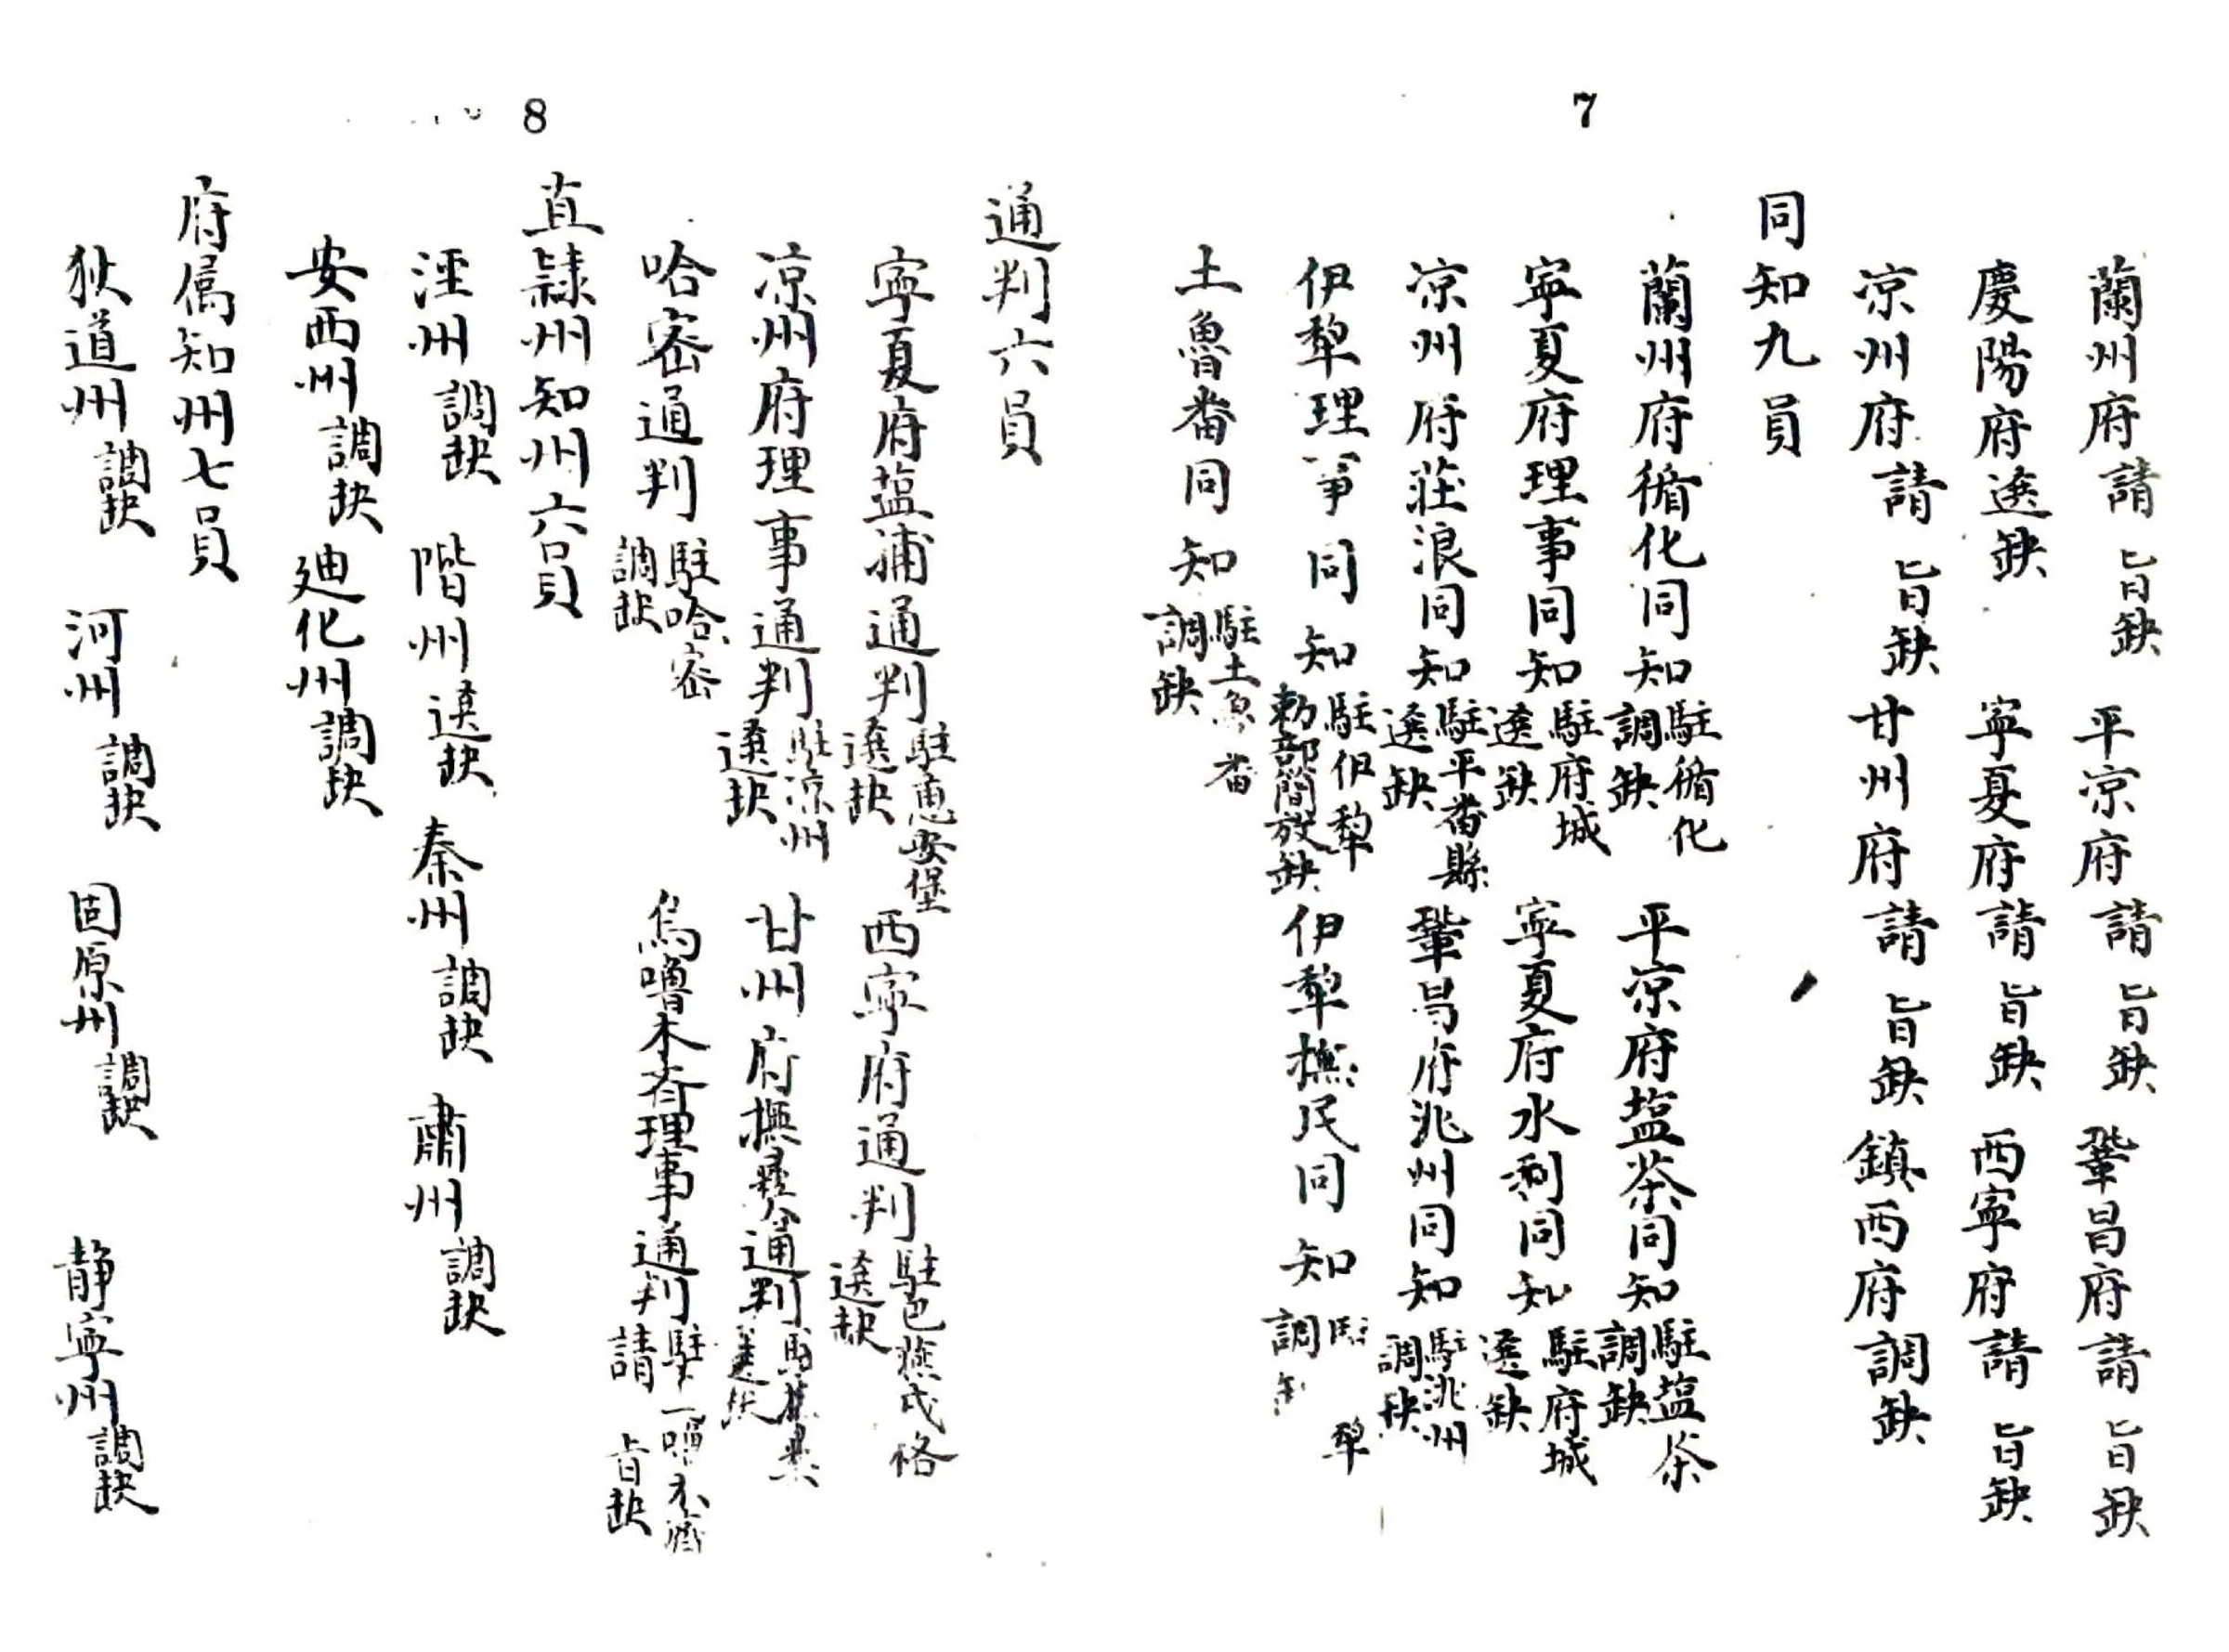 7
蘭州府請　旨缺　平凉府請　旨缺　鞏昌府請　旨缺
慶陽府選缺　寧夏府請　旨缺　西寧府請　旨缺
凉州府請　旨缺　甘州府請　旨缺　鎮西府調缺
同知九員
蘭州府循化同知駐循化調缺　平凉府塩茶同知駐塩茶調缺
寧夏府理事同知駐府城選缺　寧夏府水利同知駐府城選缺
凉州府莊浪同知駐平番縣選缺　鞏昌府洮州同知駐洮州調缺
伊犂理事同知駐伊犂勅部簡放缺　伊犂撫民同知駐犂調
土魯番同知駐土魯番調缺
8
通判六員
寧夏府塩捕通判駐惠安堡選缺　西寧府通判駐巴燕戎格選缺
凉州府理事通判駐凉州選缺　甘州府撫彝通判駐撫彝選缺
哈密通判駐哈密調缺　烏嚕木齊理事通判駐嚕木齊請　旨缺
直隸州知州六員
涇州調缺　階州選缺　秦州調缺　肅州調缺
安西州調缺　廸化州調缺
府屬知州七員
狄道州調缺　河州調缺　固原州調缺　静寧州調缺